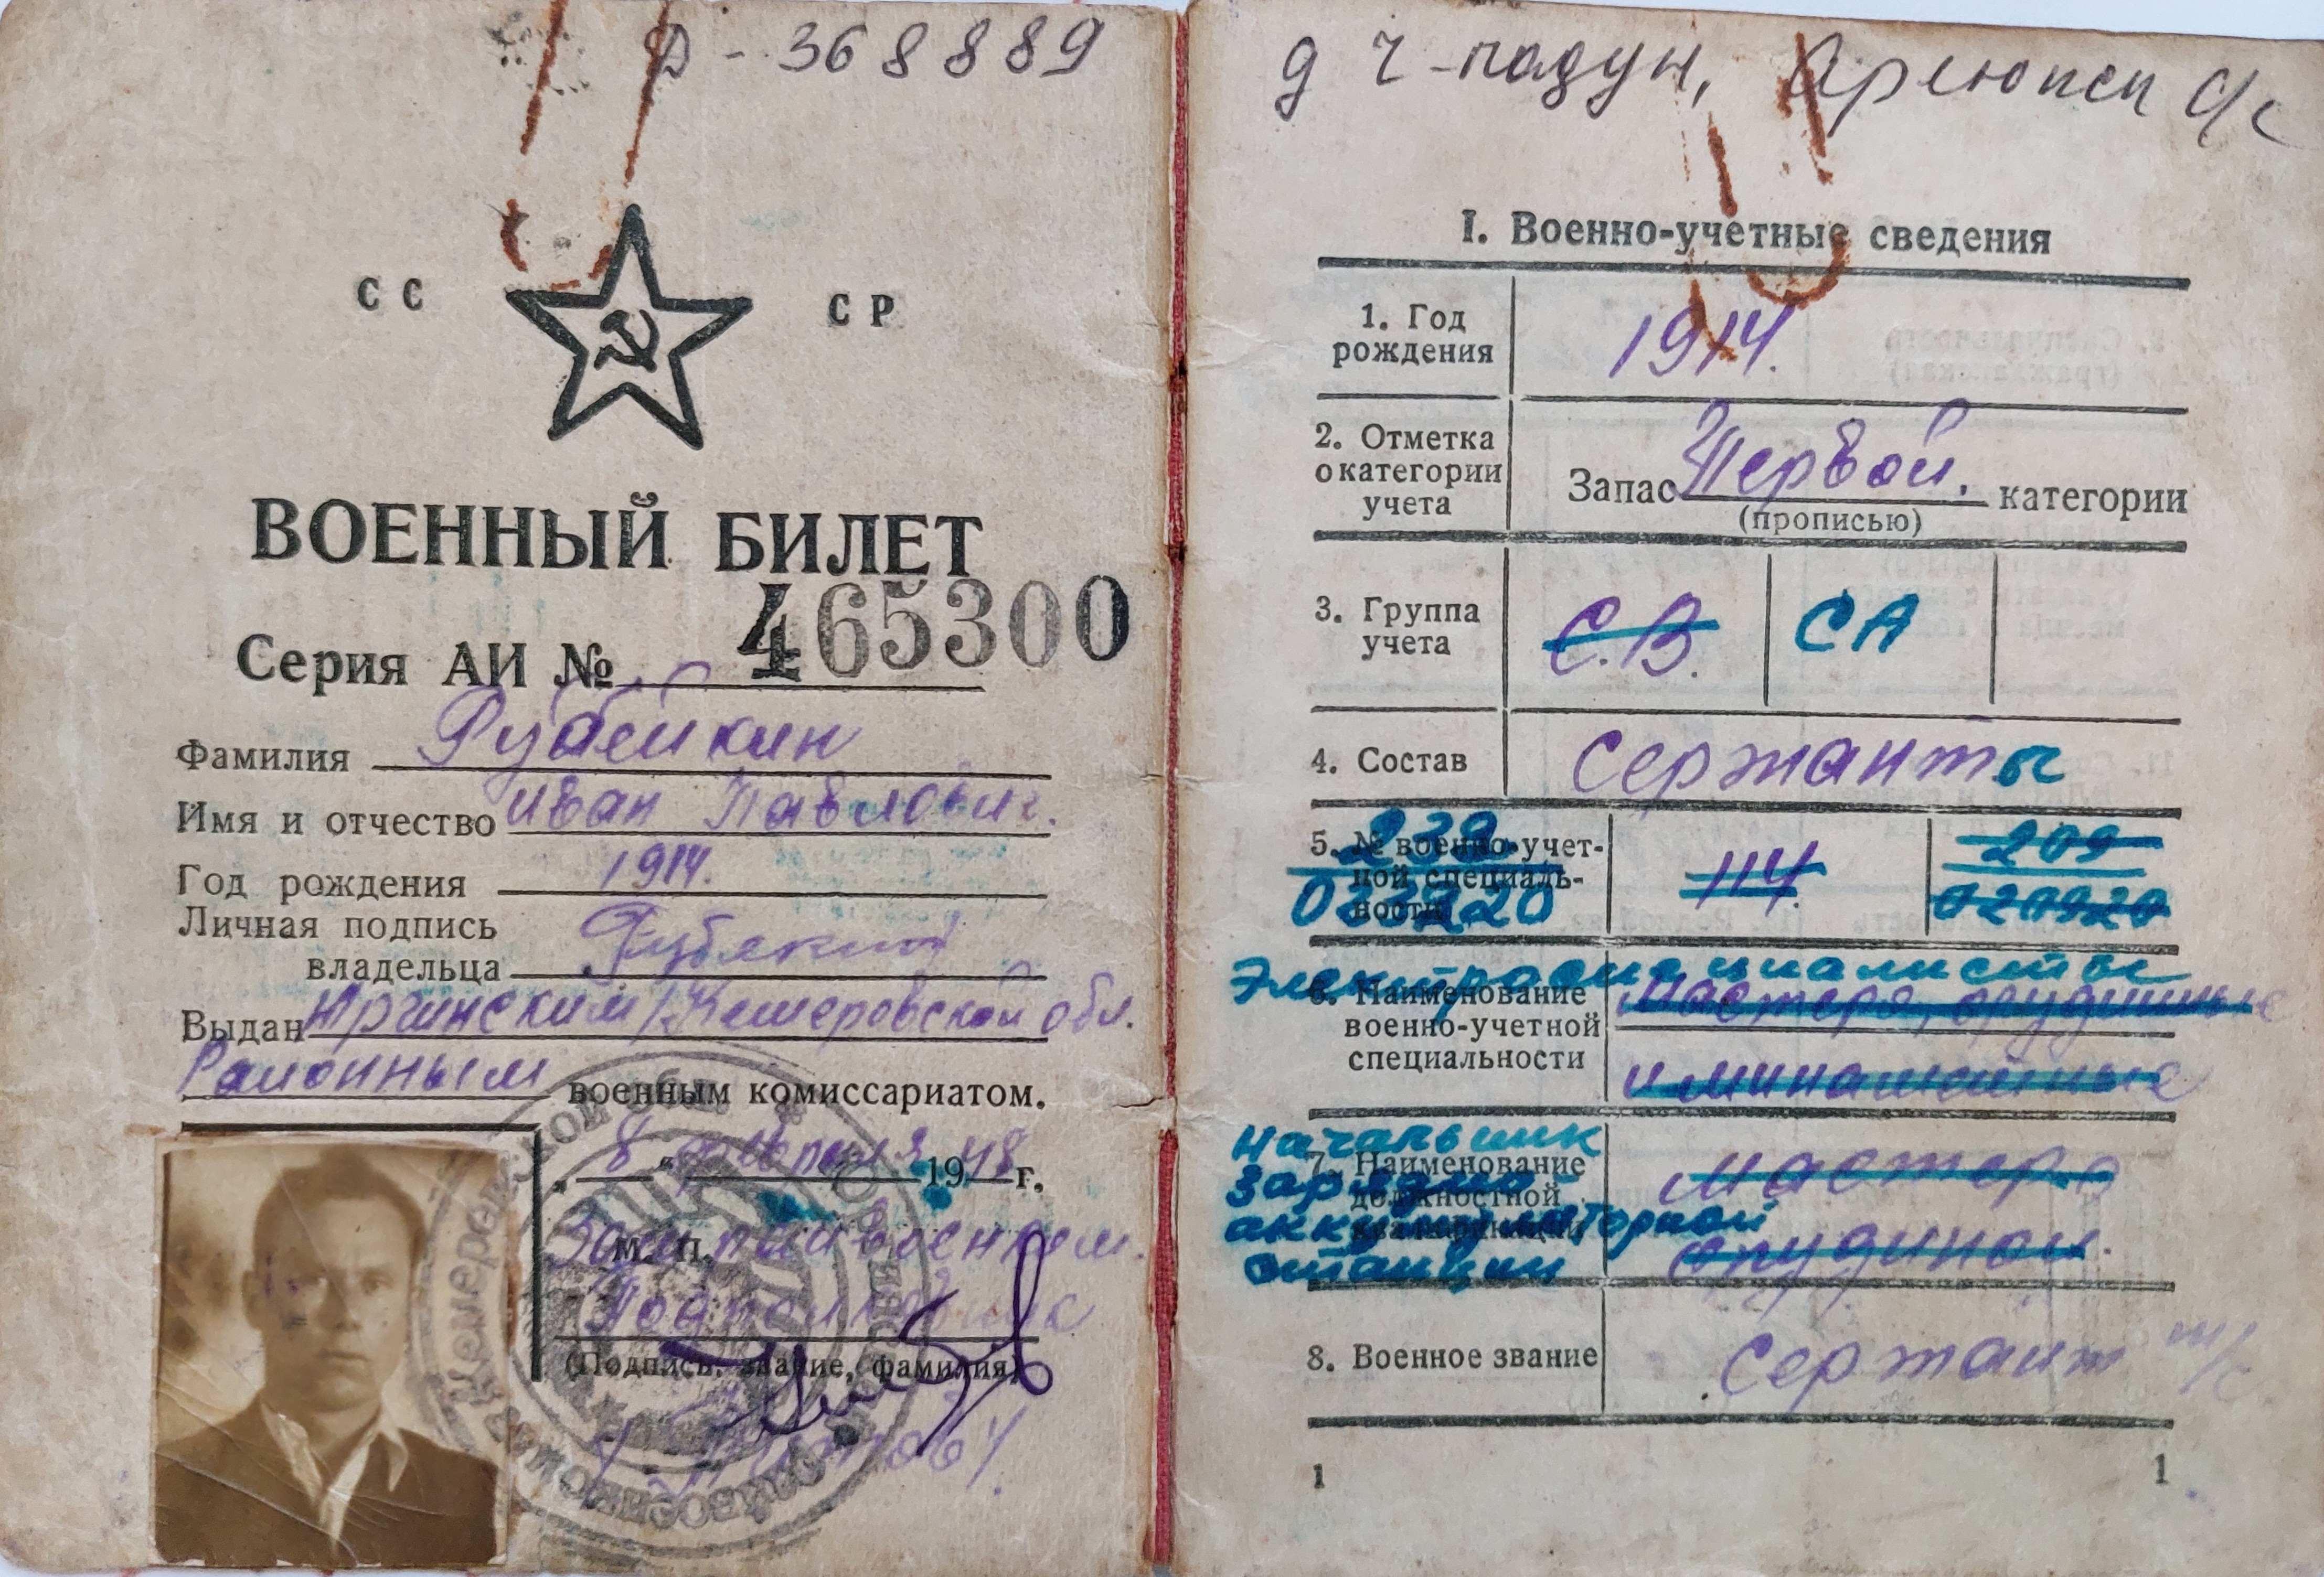 Д - 368889
СС СР
ВОЕННЫЙ БИЛЕТ
Серия АИ № 465300
Фамилия Рубейкин
Имя и отчество Иван Павлович.
Год рождения 1914.
Личная подпись
владельца
Выдан Юргинским/Кемеровской обл.
Районным военным комиссариатом.
8 19 48 г.
М. П.
Подполковник
(Подпись, звание, фамилия)
д Ч-падун, Арлюкск с/с
I. Военно-учетные сведения
1. Год
рождения
1914.
2. Отметка
о категории
учета
Запас Первой. категории
(прописью)
3. Группа
учета
С.В. СА
4. Состав сержанты
5. № военно-учет-
ной специаль-
ности
239
114
209
020920
Электроспециалисты
6. Наименование
военно-учетной
специальности
Мастера, орудийные
и минометные
Начальник
зарядно
аккумуляторной
станции
7. Наименование
должностной
мастер
орудийной.
8. Военное звание сержант т/с
1 1